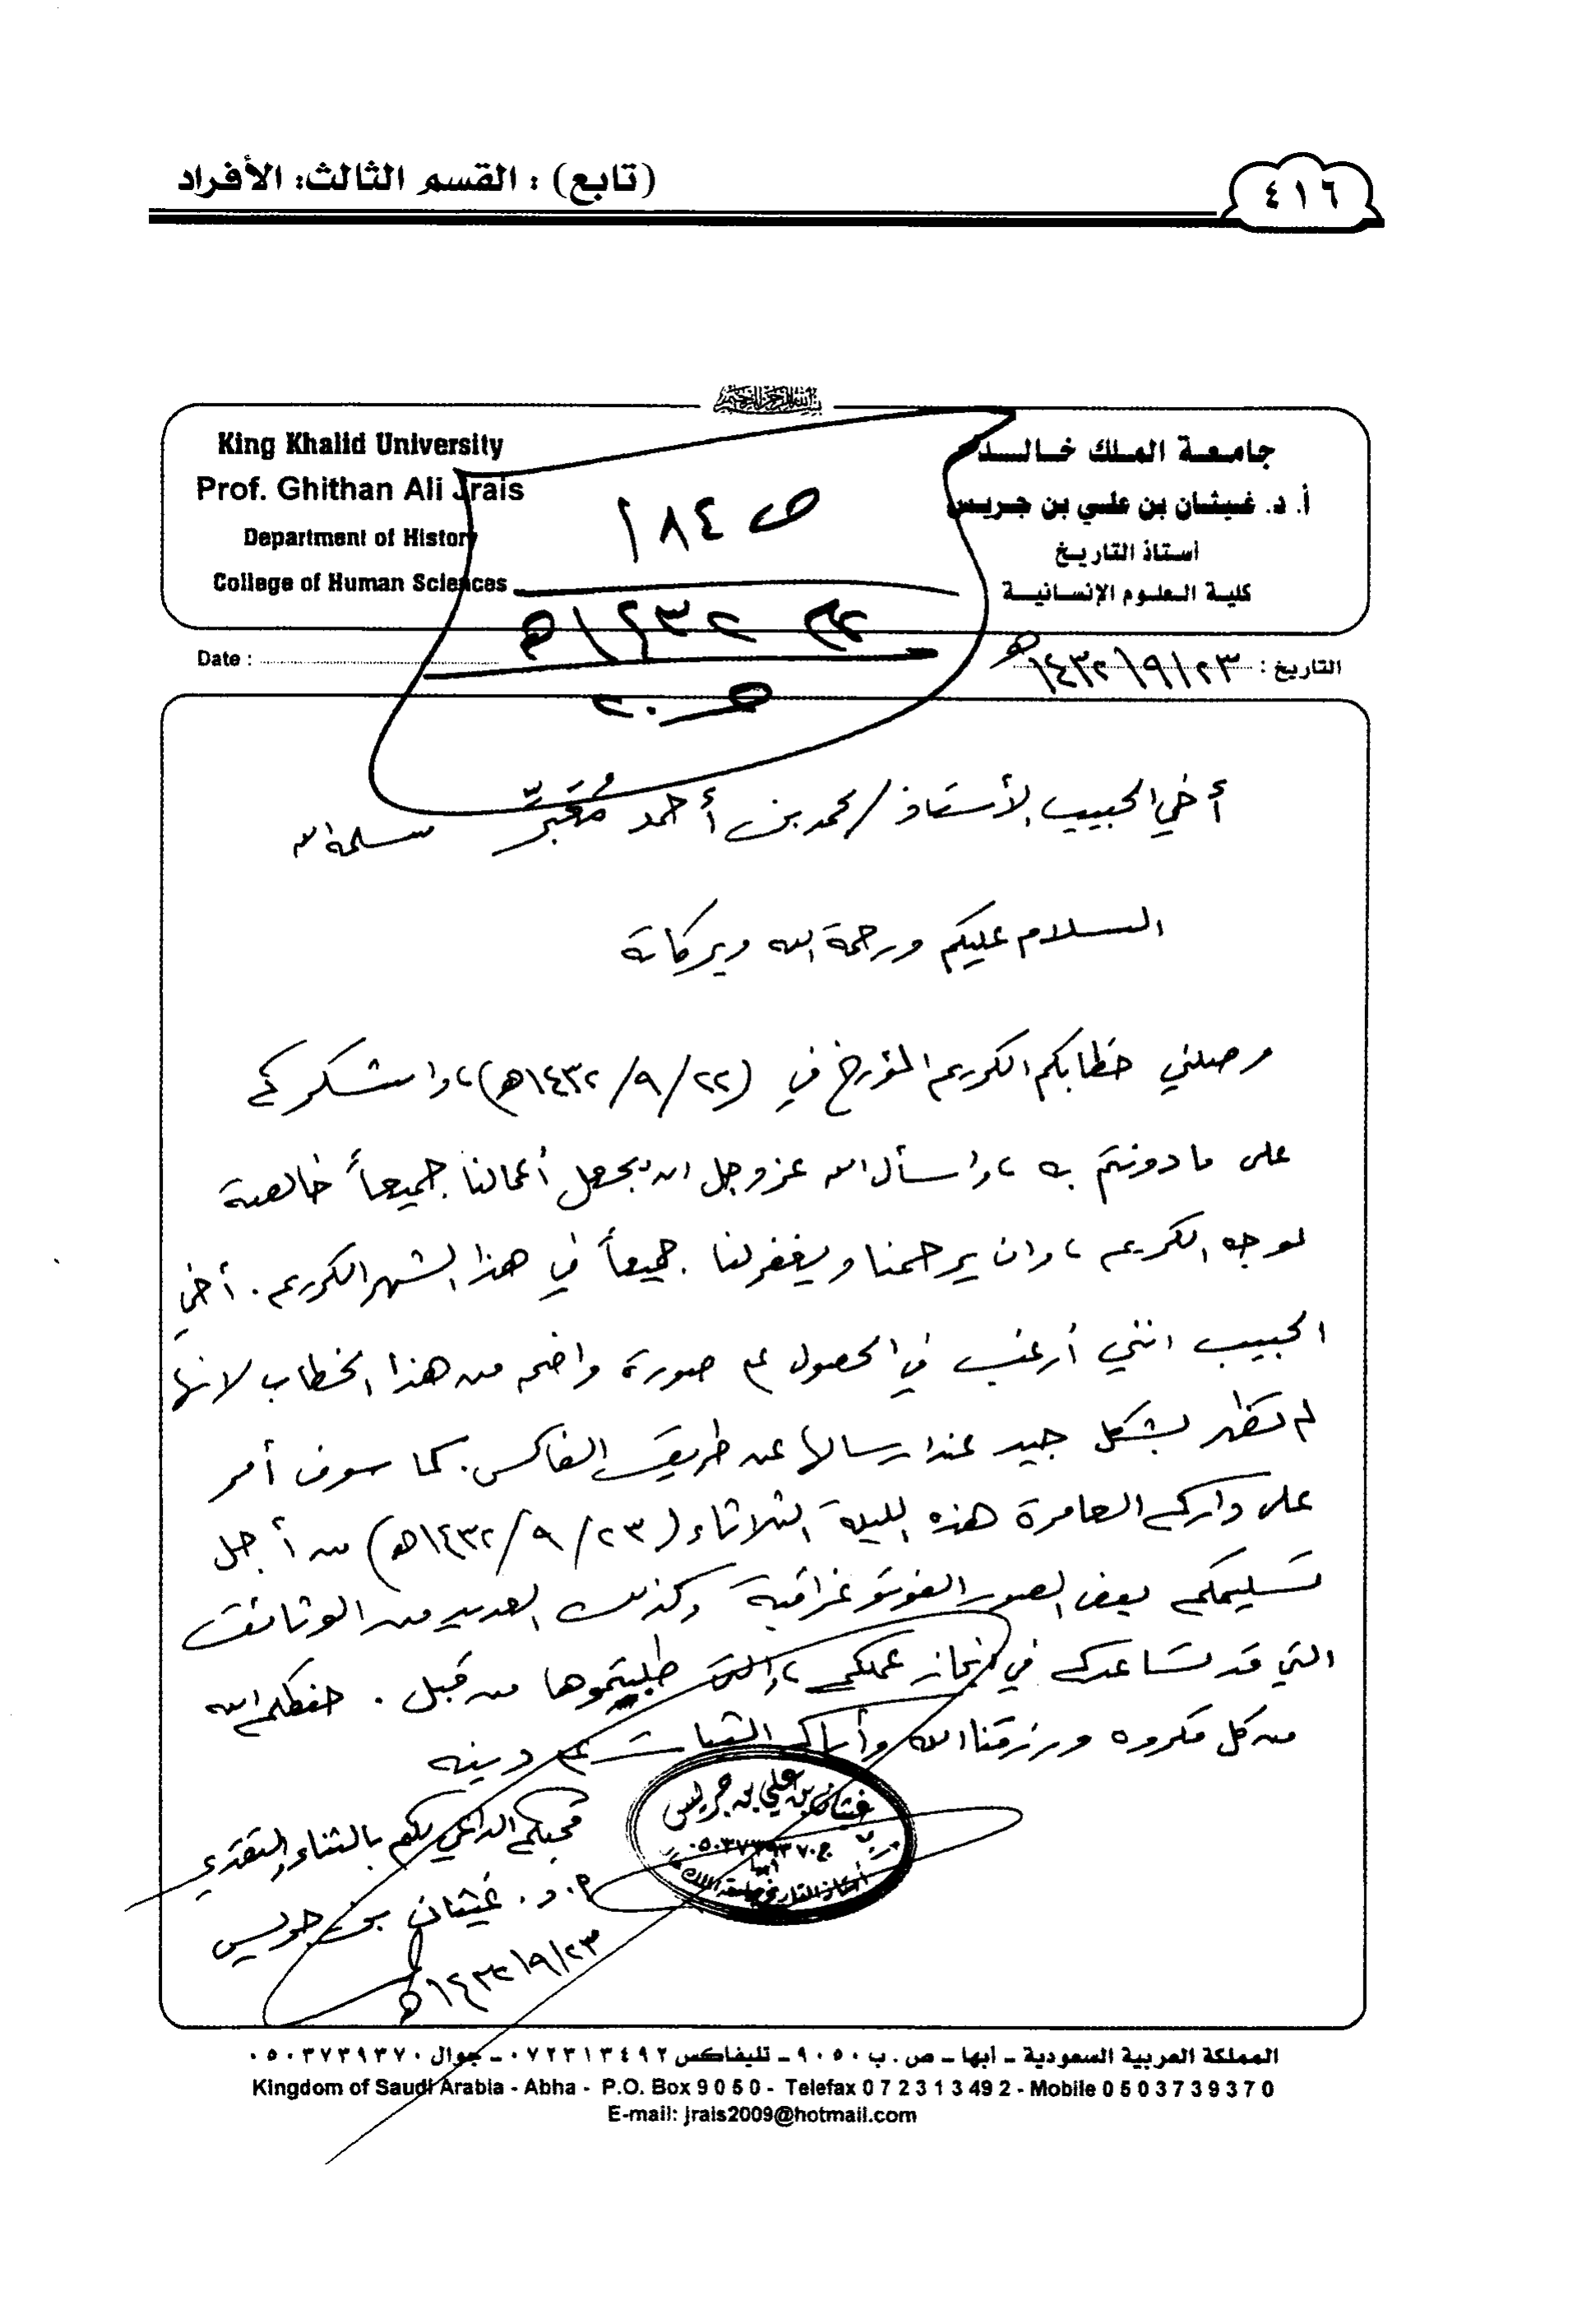 (تابع) : القسم الثالث: الأفراد
٤١٦
بسم الله الرحمن الرحيم
King Khalid University
Prof. Ghithan Ali Jrais
Department of History
College of Human Sciences
جامعة الملك خالد
أ. د. غيثان بن علي بن جريس
أستاذ التاريخ
كلية العلوم الإنسانية
ص ١٨٤
عام ١٤٣٢هـ
ص ٢٠
Date :
التاريخ : ١٤٣٢/٩/٢٣هـ
أخي الحبيب الأستاذ / محمد بن أحمد مُعَبِّر سلمه الله
السلام عليكم ورحمة الله وبركاته
وصلني خطابكم الكريم المؤرخ في (١٤٣٢/٩/٢٢هـ)، واشكركم
على ما دونتم به ، واسأل الله عز وجل ان يجعل أعمالنا جميعاً خالصة
لوجه الكريم ، وان يرحمنا ويغفر لنا جميعاً في هذا الشهر الكريم . أخي
الحبيب انني أرغب في الحصول على صورة واضحه من هذا الخطاب لانها
لم تظهر بشكل جيد عند ارسالها عن طريق الفاكس . كما سوف أمر
على داركم العامرة هذه الليلة الثلاثاء (١٤٣٢/٩/٢٣هـ) من أجل
تسليمكم بعض الصور الفوتوغرافية وكذلك العديد من الوثائق
التي قد تساعدكم في إنجاز عملكم ، والتي طلبتموها من قبل . حفظكم الله
من كل مكروه ورزقنا الله وأياكم الثبات على دينه
محبكم الداعي لكم بالثناء والتقدير
أ. د. غيثان بن جريس
١٤٣٢/٩/٢٣هـ
غيثان بن علي بن جريس
ج ٠٥٠٣٧٣٩٣٧٠
أبها
أستاذ التاريخ بجامعة الملك خالد
المملكة العربية السعودية - أبها - ص . ب ٩٠٥٠ - تليفاكس ٠٧٢٣١٣٤٩٢ - جوال ٠٥٠٣٧٣٩٣٧٠
Kingdom of Saudi Arabia - Abha - P.O. Box 9 0 5 0 - Telefax 0 7 2 3 1 3 49 2 - Mobile 0 5 0 3 7 3 9 3 7 0
E-mail: jrais2009@hotmail.com